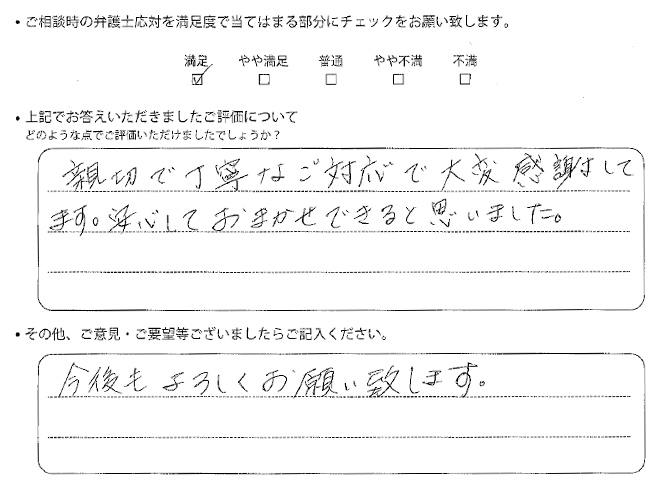 ・ご相談時の弁護士応対を満足度で当てはまる部分にチェックをお願い致します。
満足 やや満足 普通 やや不満 不満
☑ □ □ □ □
・上記でお答えいただきましたご評価について
どのような点でご評価いただけましたでしょうか?
親切で丁寧なご対応で大変感謝して
ます。安心しておまかせできると思いました。
・その他、ご意見・ご要望等ございましたらご記入ください。
今後もよろしくお願い致します。